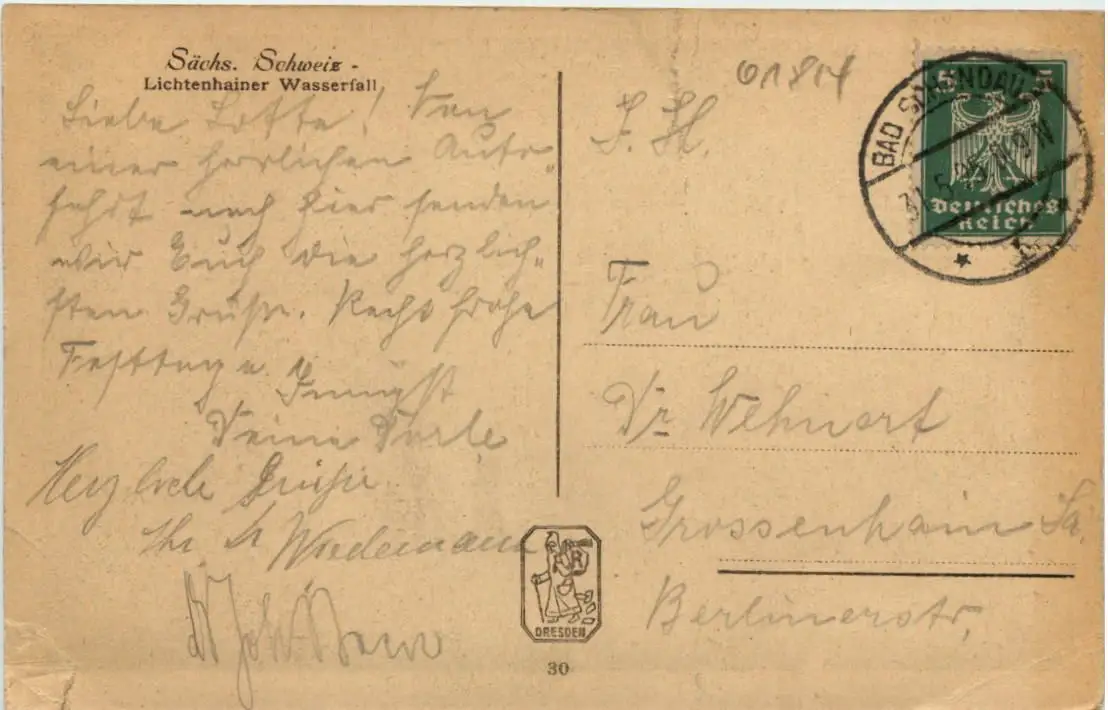 Sächs. Schweiz -
Lichtenhainer Wasserfall
Liebe Lotte! Von
einer herrlichen Auto-
fahrt nach hier senden
wir Euch die herzlich-
sten Grüße. Recht frohe
Festtage u.
Innigst
Deine Dorle
Herzliche Grüße
Ihr Wiedemann
01814
BAD SCHANDAU
31.5.25. 8-9N
5 5
Deutsches
Reich
Frau
Dr Wehnert
Grossenhain Sa.
Berlinerstr,
DRESDEN
30